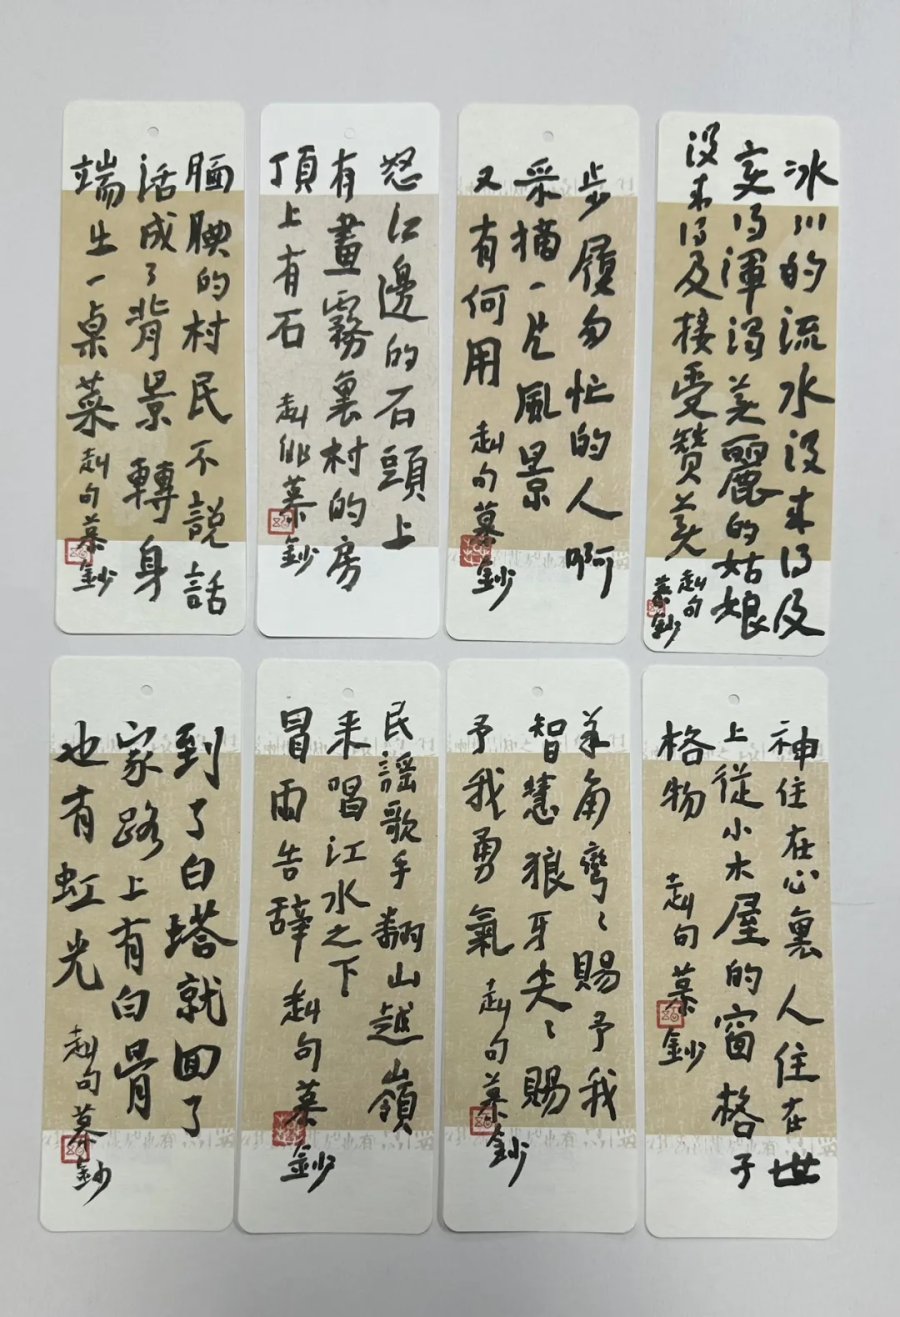 冰川的流水没来得及
变得渾濁美麗的姑娘
没来得及接受赞美
赳句
慕鈔
步履匆忙的人啊
采摘一片風景
又有何用 赳句慕鈔
怒江邊的石頭上
有畫霧裏村的房
頂上有石 赳俳慕鈔
腼腆的村民不説話
活成了背景轉身
端出一桌菜 赳句慕鈔
神住在心裏人住在世
上從小木屋的窗格子
格物 赳句慕鈔
羊角彎〻賜予我
智慧狼牙尖〻賜
予我勇氣 赳句慕鈔
民謡歌手翻山越嶺
来唱江水之下
冒雨告辞 赳句慕鈔
到了白塔就回了
家路上有白骨
也有虹光 赳句慕鈔